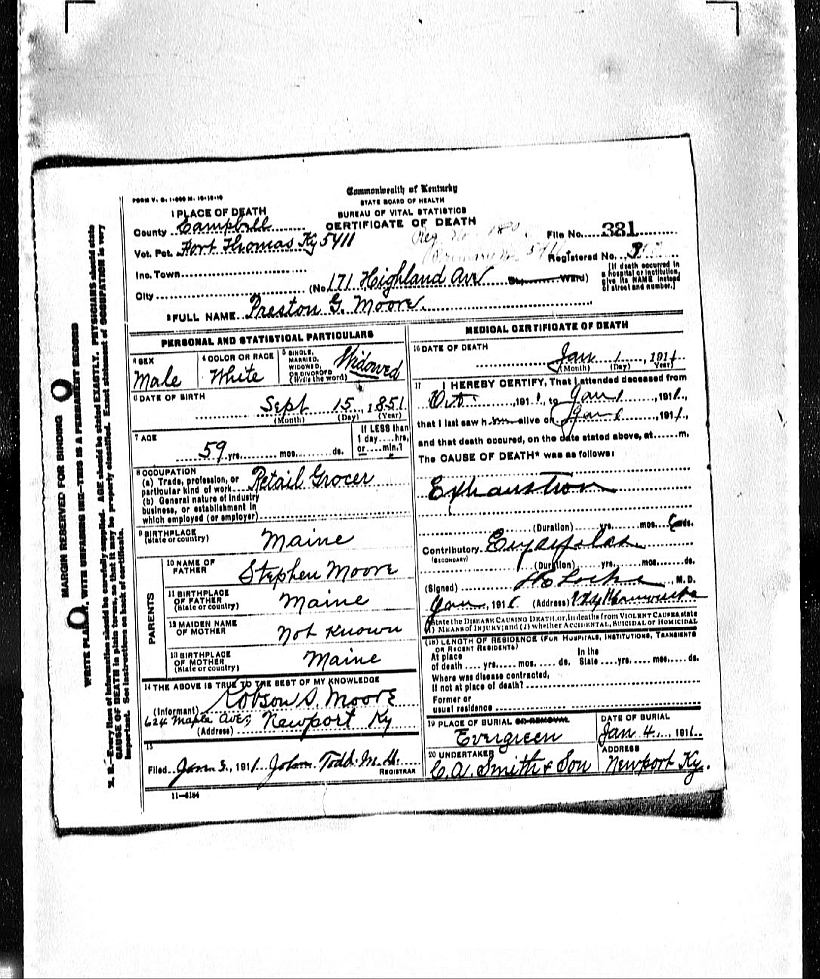 MARGIN RESERVED FOR BINDING
WRITE PLAINLY, WITH UNFADING INK—THIS IS A PERMANENT RECORD
N. B.—Every item of information should be carefully supplied. AGE should be stated EXACTLY. PHYSICIANS should state
CAUSE OF DEATH in plain terms, so that it may be properly classified. Exact statement of OCCUPATION is very
important. See instructions on back of certificate.
Commonwealth of Kentucky
STATE BOARD OF HEALTH
BUREAU OF VITAL STATISTICS
CERTIFICATE OF DEATH
1 PLACE OF DEATH
County Campbell
File No. 381
Vot. Pct. Fort Thomas Ky 5411
Registered No.
Inc. Town
City (No. 171 Highland Ave Ward)
(If death occurred in
a hospital or institution,
give its NAME instead
of street and number.)
2 FULL NAME Preston G. Moore
PERSONAL AND STATISTICAL PARTICULARS
3 SEX Male
4 COLOR OR RACE White
5 SINGLE, MARRIED, WIDOWED, OR DIVORCED (Write the word) Widowed
6 DATE OF BIRTH Sept 15, 1851
(Month) (Day) (Year)
7 AGE 59 yrs. mos. ds.
If LESS than
1 day hrs.
or min.?
8 OCCUPATION
(a) Trade, profession, or
particular kind of work Retail Grocer
(b) General nature of industry
business, or establishment in
which employed (or employer)
9 BIRTHPLACE
(State or country) Maine
PARENTS
10 NAME OF
FATHER Stephen Moore
11 BIRTHPLACE
OF FATHER
(State or country) Maine
12 MAIDEN NAME
OF MOTHER Not Known
13 BIRTHPLACE
OF MOTHER
(State or country) Maine
14 THE ABOVE IS TRUE TO THE BEST OF MY KNOWLEDGE
(Informant) Robson S. Moore
624 Maple Ave,
(Address) Newport Ky
15
Filed Jan 3, 1911 John Todd M.D.
REGISTRAR
11—6184
MEDICAL CERTIFICATE OF DEATH
16 DATE OF DEATH
Jan 1, 1911
(Month) (Day) (Year)
17 I HEREBY CERTIFY, That I attended deceased from
191 , to Jan 1, 1911,
that I last saw him alive on Jan 1, 1911,
and that death occured, on the date stated above, at m.
The CAUSE OF DEATH* was as follows:
Exhaustion
(Duration) yrs. mos. ds.
Contributory Erysipelas
(SECONDARY)
(Duration) yrs. mos. ds.
(Signed) M. D.
Jan , 191 (Address)
*State the DISEASE CAUSING DEATH, or, in deaths from VIOLENT CAUSES, state
(1) MEANS OF INJURY; and (2) whether ACCIDENTAL, SUICIDAL or HOMICIDAL
(18) LENGTH OF RESIDENCE (FOR HOSPITALS, INSTITUTIONS, TRANSIENTS
OR RECENT RESIDENTS)
At place In the
of death yrs. mos. ds. State yrs. mos. ds.
Where was disease contracted,
If not at place of death?
Former or
usual residence
19 PLACE OF BURIAL OR REMOVAL
Evergreen
DATE OF BURIAL
Jan 4, 1911
20 UNDERTAKER
C. A. Smith & Son
ADDRESS
Newport Ky.